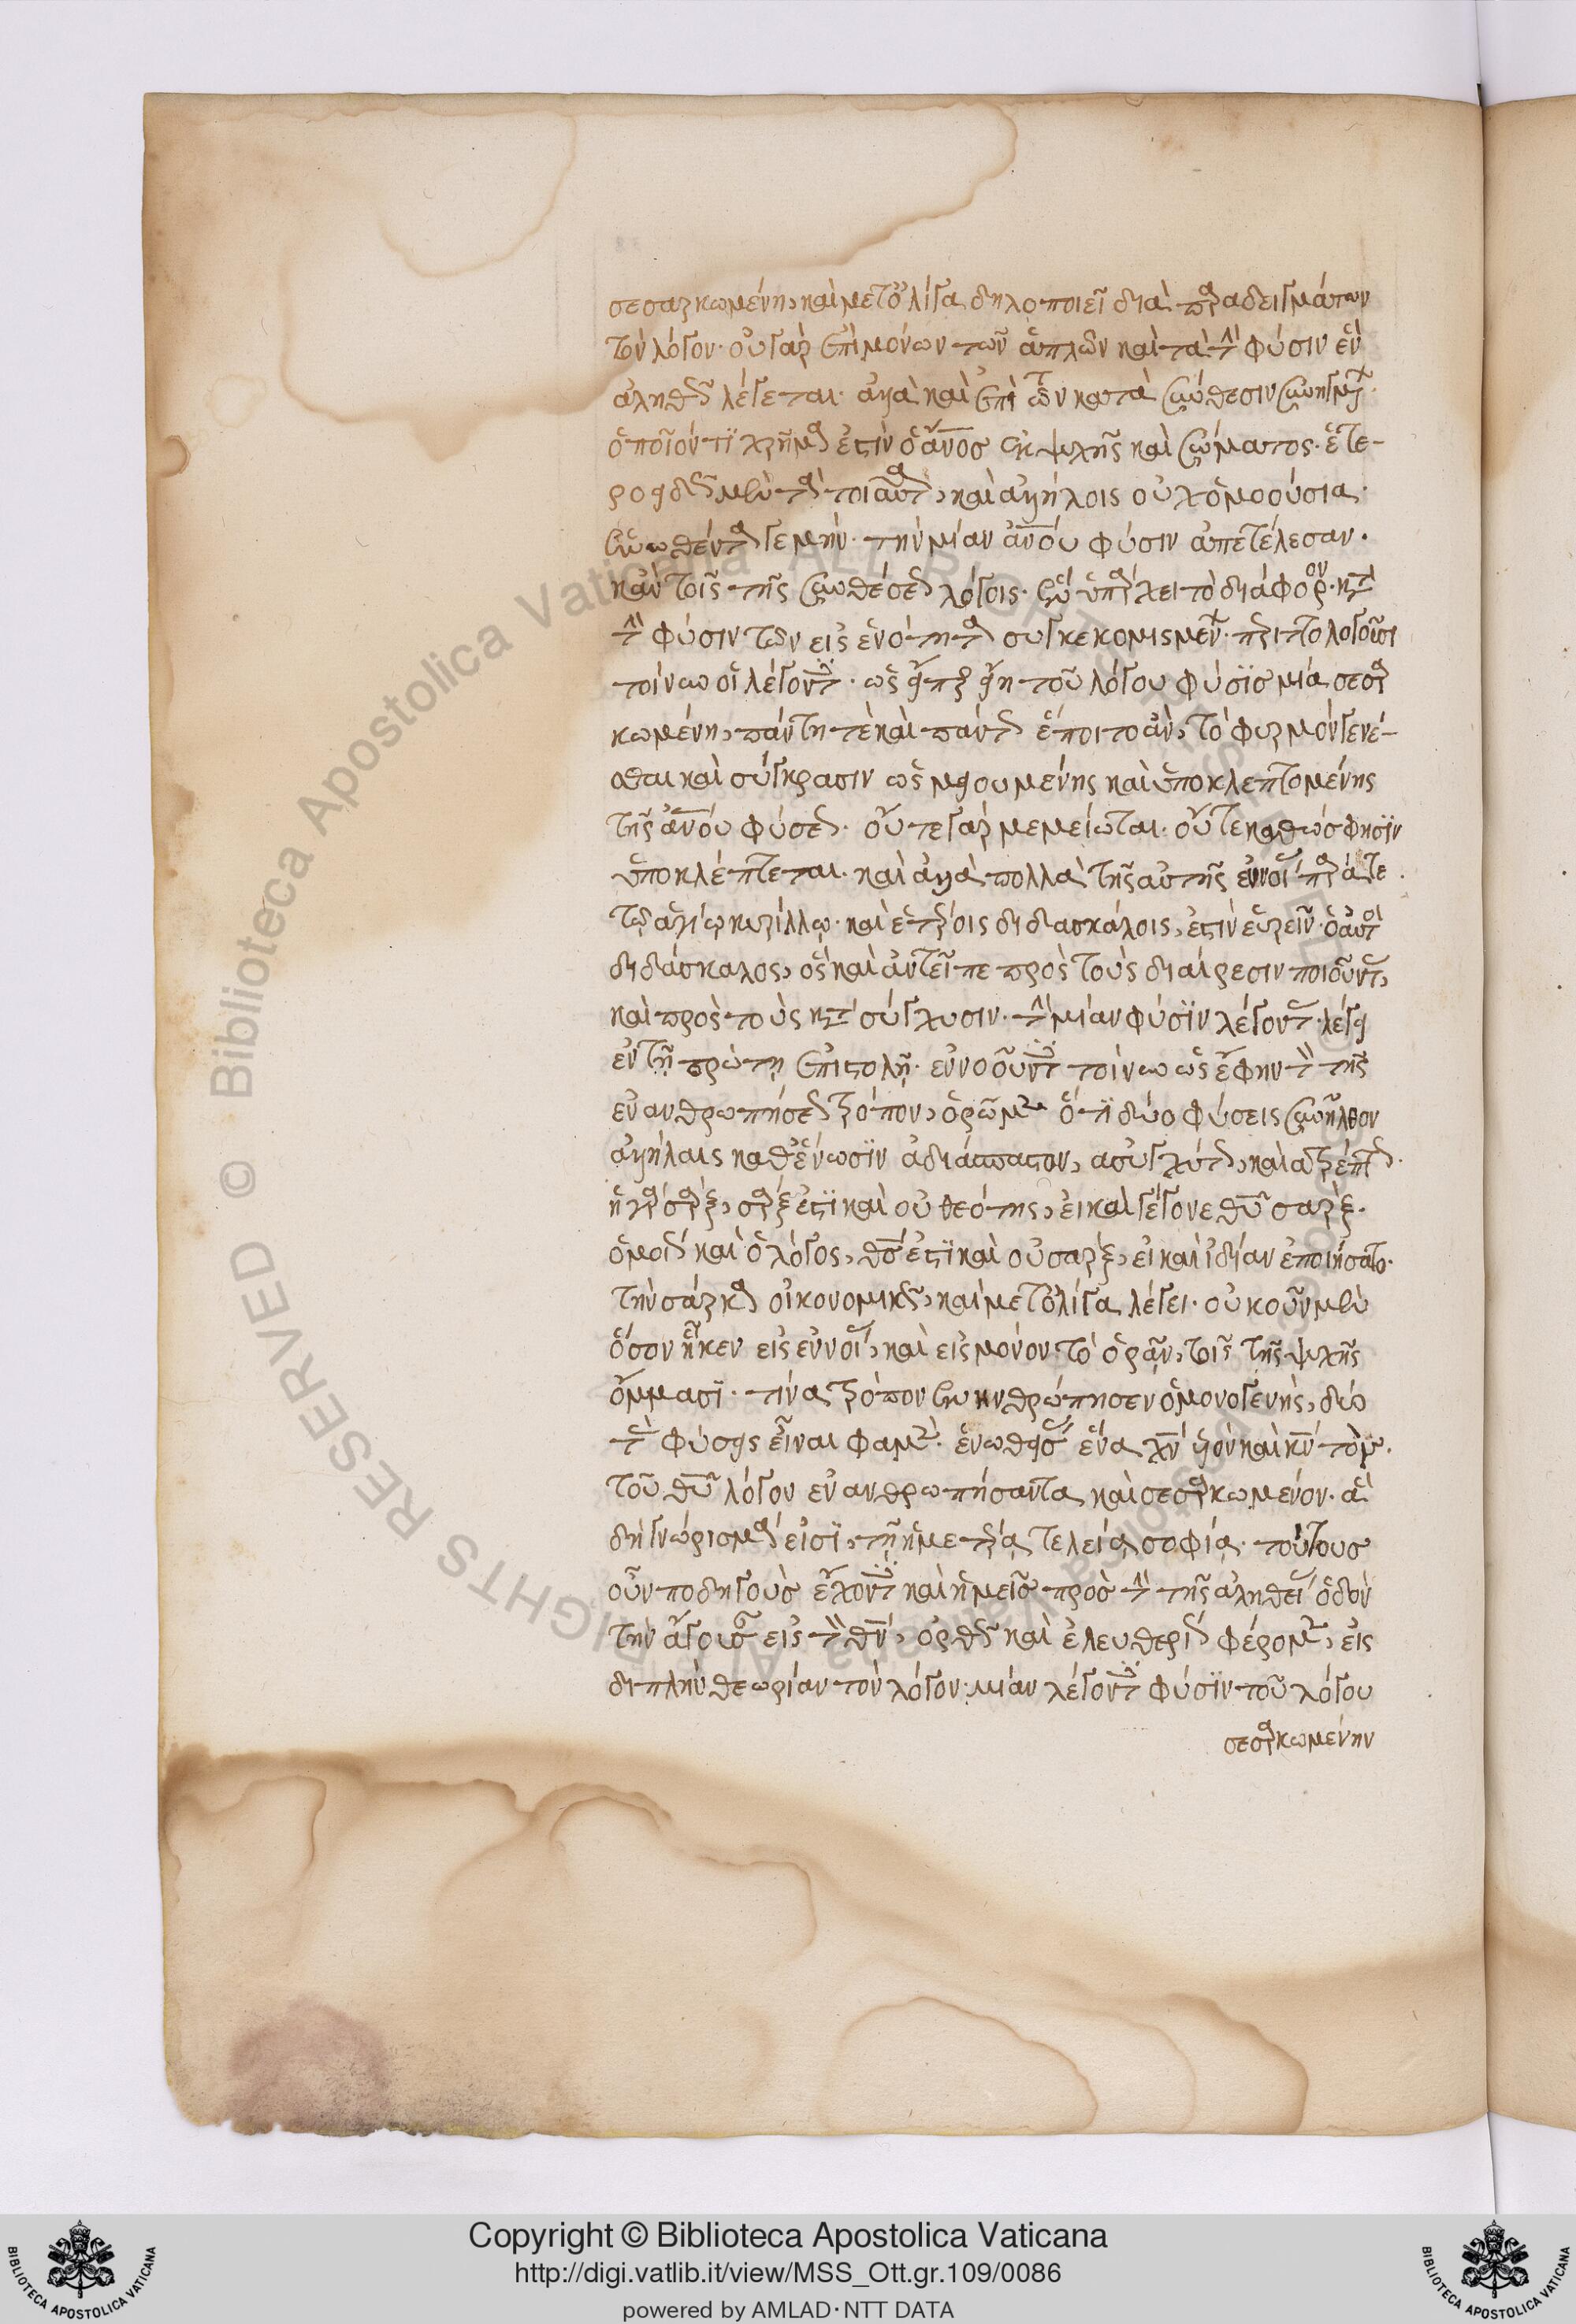 σεσαρκωμένη, καὶ μετ' ὀλίγα δηλοποιεῖ διὰ παραδειγμάτων
τὸν λόγον· οὐ γὰρ ἐπὶ μόνων τῶν ἁπλῶν καὶ τὰ τὴν φύσιν ἓν
ἀληθῶς λέγεται· ἀλλὰ καὶ ἐπὶ τῶν κατὰ σύνθεσιν συνηγμένων·
ὁποῖόν τι χρῆμα ἐστὶν ὁ ἄνος ἐκ ψυχῆς καὶ σώματος· ἑτε-
ροειδῆ μὲν τὰ τοιαῦτα, καὶ ἀλλήλοις οὐχ ὁμοούσια·
ἑνωθέντα γε μὴν· τὴν μίαν ἀνου φύσιν ἀπετέλεσαν·
κἂν τοῖς τῆς συνθέσεως λόγοις· ἐνυπάρχει τὸ διάφορον· κατὰ
τὴν φύσιν τῶν εἰς ἑνότητα συγκεκομισμένων· περιττολογοῦσι
τοίνυν οἱ λέγοντες· ὡς εἴπερ εἴη τοῦ λόγου φύσις μία σεσαρ
κωμένη, πάντη τὲ καὶ πάντως ἕποιτο ἂν, τὸ φυρμὸν γενέ-
σθαι καὶ σύγκρασιν ὡς μειουμένης καὶ ὑποκλεπτομένης
τῆς ἀνου φύσεως· οὔτε γὰρ μεμείωται· οὔτε καθώς φησὶν
ὑποκλέπτεται· καὶ ἀλλὰ πολλὰ τῆς αὐτῆς ἐννοίας παρά τε
τῷ ἁγίῳ κυρίλλῳ· καὶ ἑτέροις διδασκάλοις, ἐστὶν εὑρεῖν· ὁ αὐτὸς
διδάσκαλος, ὃς καὶ ἀντεῖπε πρὸς τοὺς διαίρεσιν ποιοῦντας,
καὶ πρὸς τοὺς κατὰ σύγχυσιν· τὴν μίαν φύσιν λέγοντας· λέγει
ἐν τῇ πρώτῃ ἐπιστολῇ· ἐννοοῦντες τοίνυν ὡς ἔφην τὸν τῆς
ἐνανθρωπήσεως τρόπον, ὁρῶμεν ὅτι δύο φύσεις συνῆλθον
ἀλλήλαις καθ' ἕνωσιν ἀδιάσπαστον, ἀσυγχύτως, καὶ ἀτρέπτως·
ἡ γὰρ σὰρξ, σάρξ ἐστι καὶ οὐ θεότης, εἰ καὶ γέγονε θῦ σαρξ·
ὁμοίως καὶ ὁ λόγος, θς ἐστι καὶ οὐ σαρξ, εἰ καὶ ἰδίαν ἐποιήσατο·
τὴν σάρκα οἰκονομικῶς, καὶ μετ' ὀλίγα λέγει· οὐκοῦν μὲν
ὅσον ἧκεν εἰς ἔννοιαν, καὶ εἰς μόνον τὸ ὁρᾷν, τοῖς τῆς ψυχῆς
ὄμμασι· τίνα τρόπον ἐνηνθρώπησεν ὁ μονογενὴς, δύο
τὰς φύσεις εἶναι φαμὲν· ἑνωθείσας ἕνα χν υἱὸν καὶ κν τὸν
τοῦ θῦ λόγον ἐνανθρωπήσαντα καὶ σεσαρκωμένον· ἃ
δὴ γνώρισμα εἰσὶ, τῇ ἡμετέρᾳ τελείᾳ σοφίᾳ· τούτους
οὖν ποδηγοὺς ἔχοντες καὶ ἡμεῖς πρὸς τὴν τῆς ἀληθείας ὁδὸν
τὴν ἄγουσαν εἰς τὸν θν, ὀρθῶς καὶ ἐλευθερίως φέρομεν, εἰς
διπλὴν θεωρίαν τὸν λόγον· μίαν λέγοντες φύσιν τοῦ λόγου
σεσαρκωμένην
© Biblioteca Apostolica Vaticana ALL RIGHTS RESERVED
Copyright © Biblioteca Apostolica Vaticana
http://digi.vatlib.it/view/MSS_Ott.gr.109/0086
powered by AMLAD·NTT DATA
BIBLIOTECA APOSTOLICA VATICANA
BIBLIOTECA APOSTOLICA VATICANA